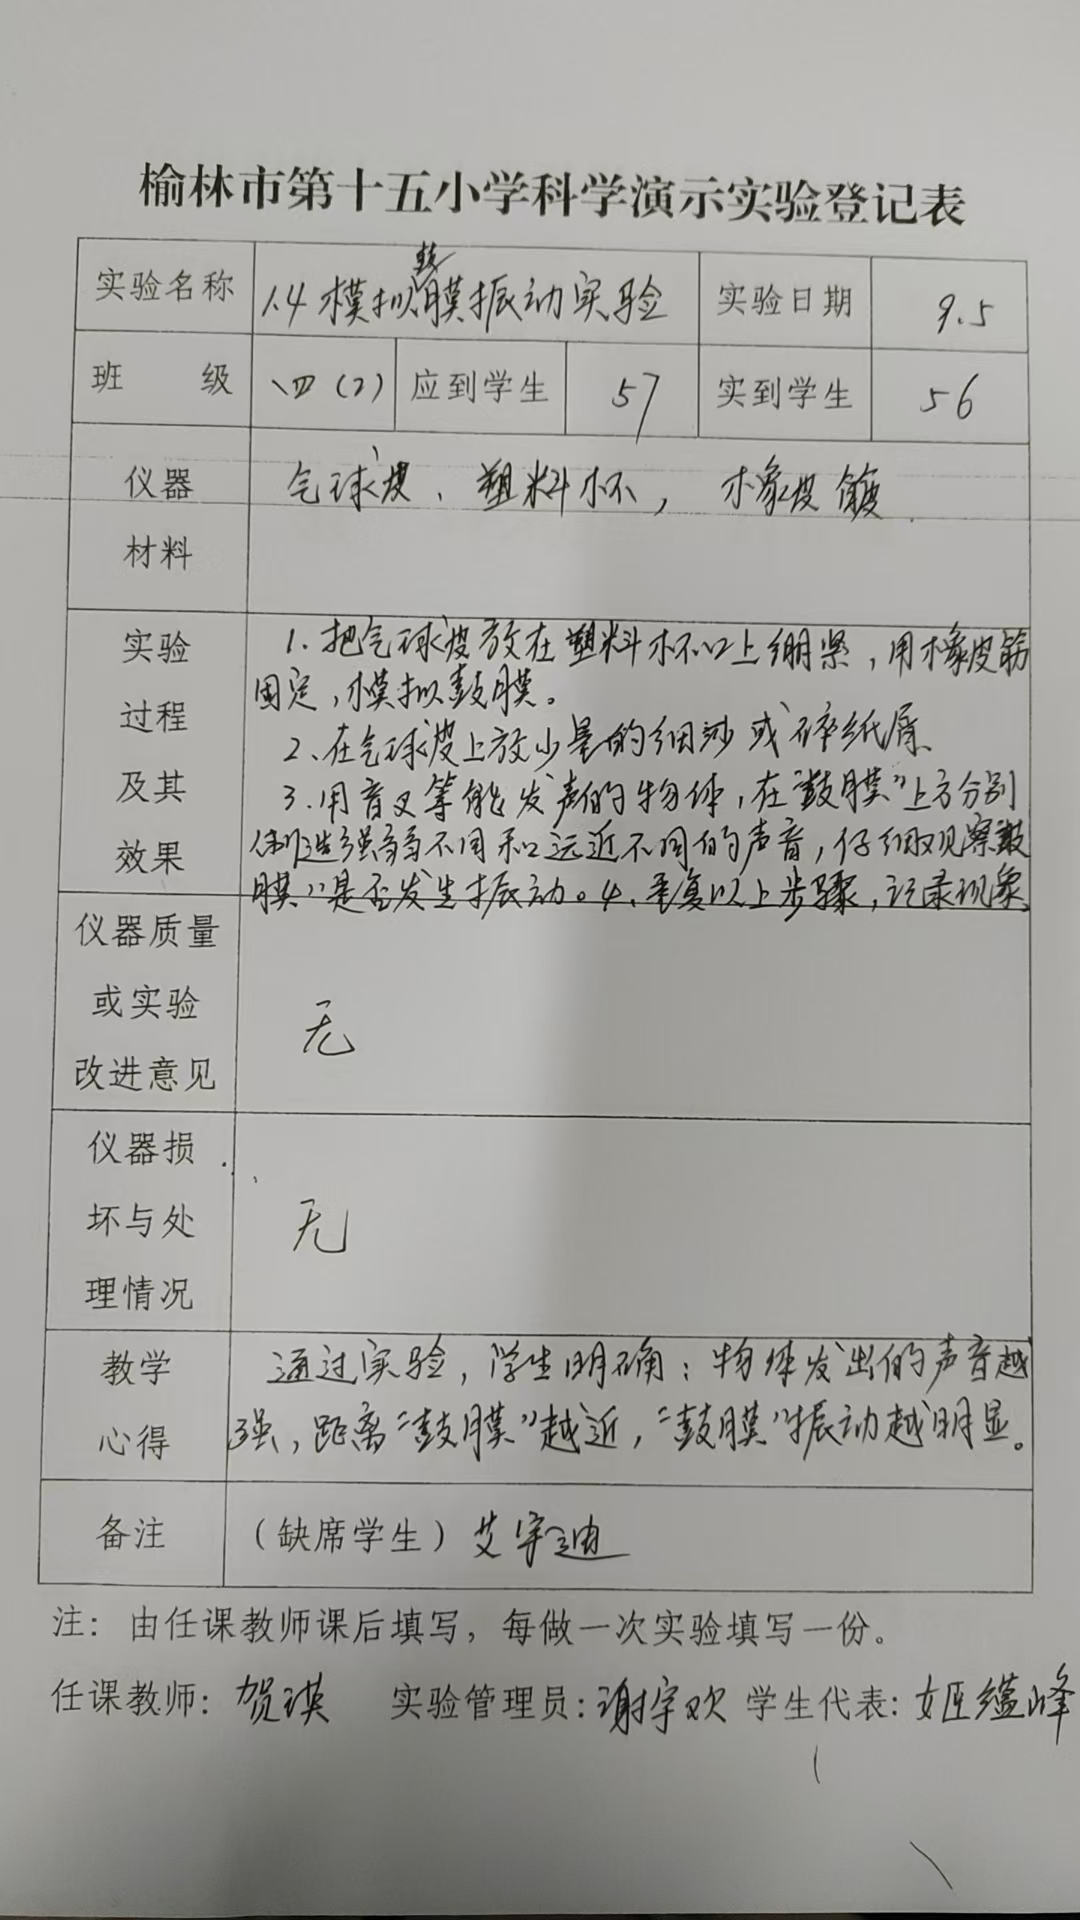 榆林市第十五小学科学演示实验登记表
实验名称 1.4模拟鼓膜振动实验 实验日期 9.5
班 级 四(2) 应到学生 57 实到学生 56
仪器 气球皮、塑料杯, 橡皮筋
材料
实验 1.把气球皮放在塑料杯口上绷紧,用橡皮筋
过程 固定,模拟鼓膜。
及其 2、在气球皮上放少量的细沙或碎纸屑
效果 3.用音叉等能发声的物体,在“鼓膜”上方分别
制造强弱不同和远近不同的声音,仔细观察“鼓
膜”是否发生振动。4、重复以上步骤,记录现象
仪器质量
或实验 无
改进意见
仪器损
坏与处 无
理情况
教学 通过实验,学生明确:物体发出的声音越
心得 强,距离“鼓膜”越近,“鼓膜”振动越明显。
备注 (缺席学生)艾宇迪
注:由任课教师课后填写,每做一次实验填写一份。
任课教师:贺琪 实验管理员:谢宇欢 学生代表:姬蕴峰